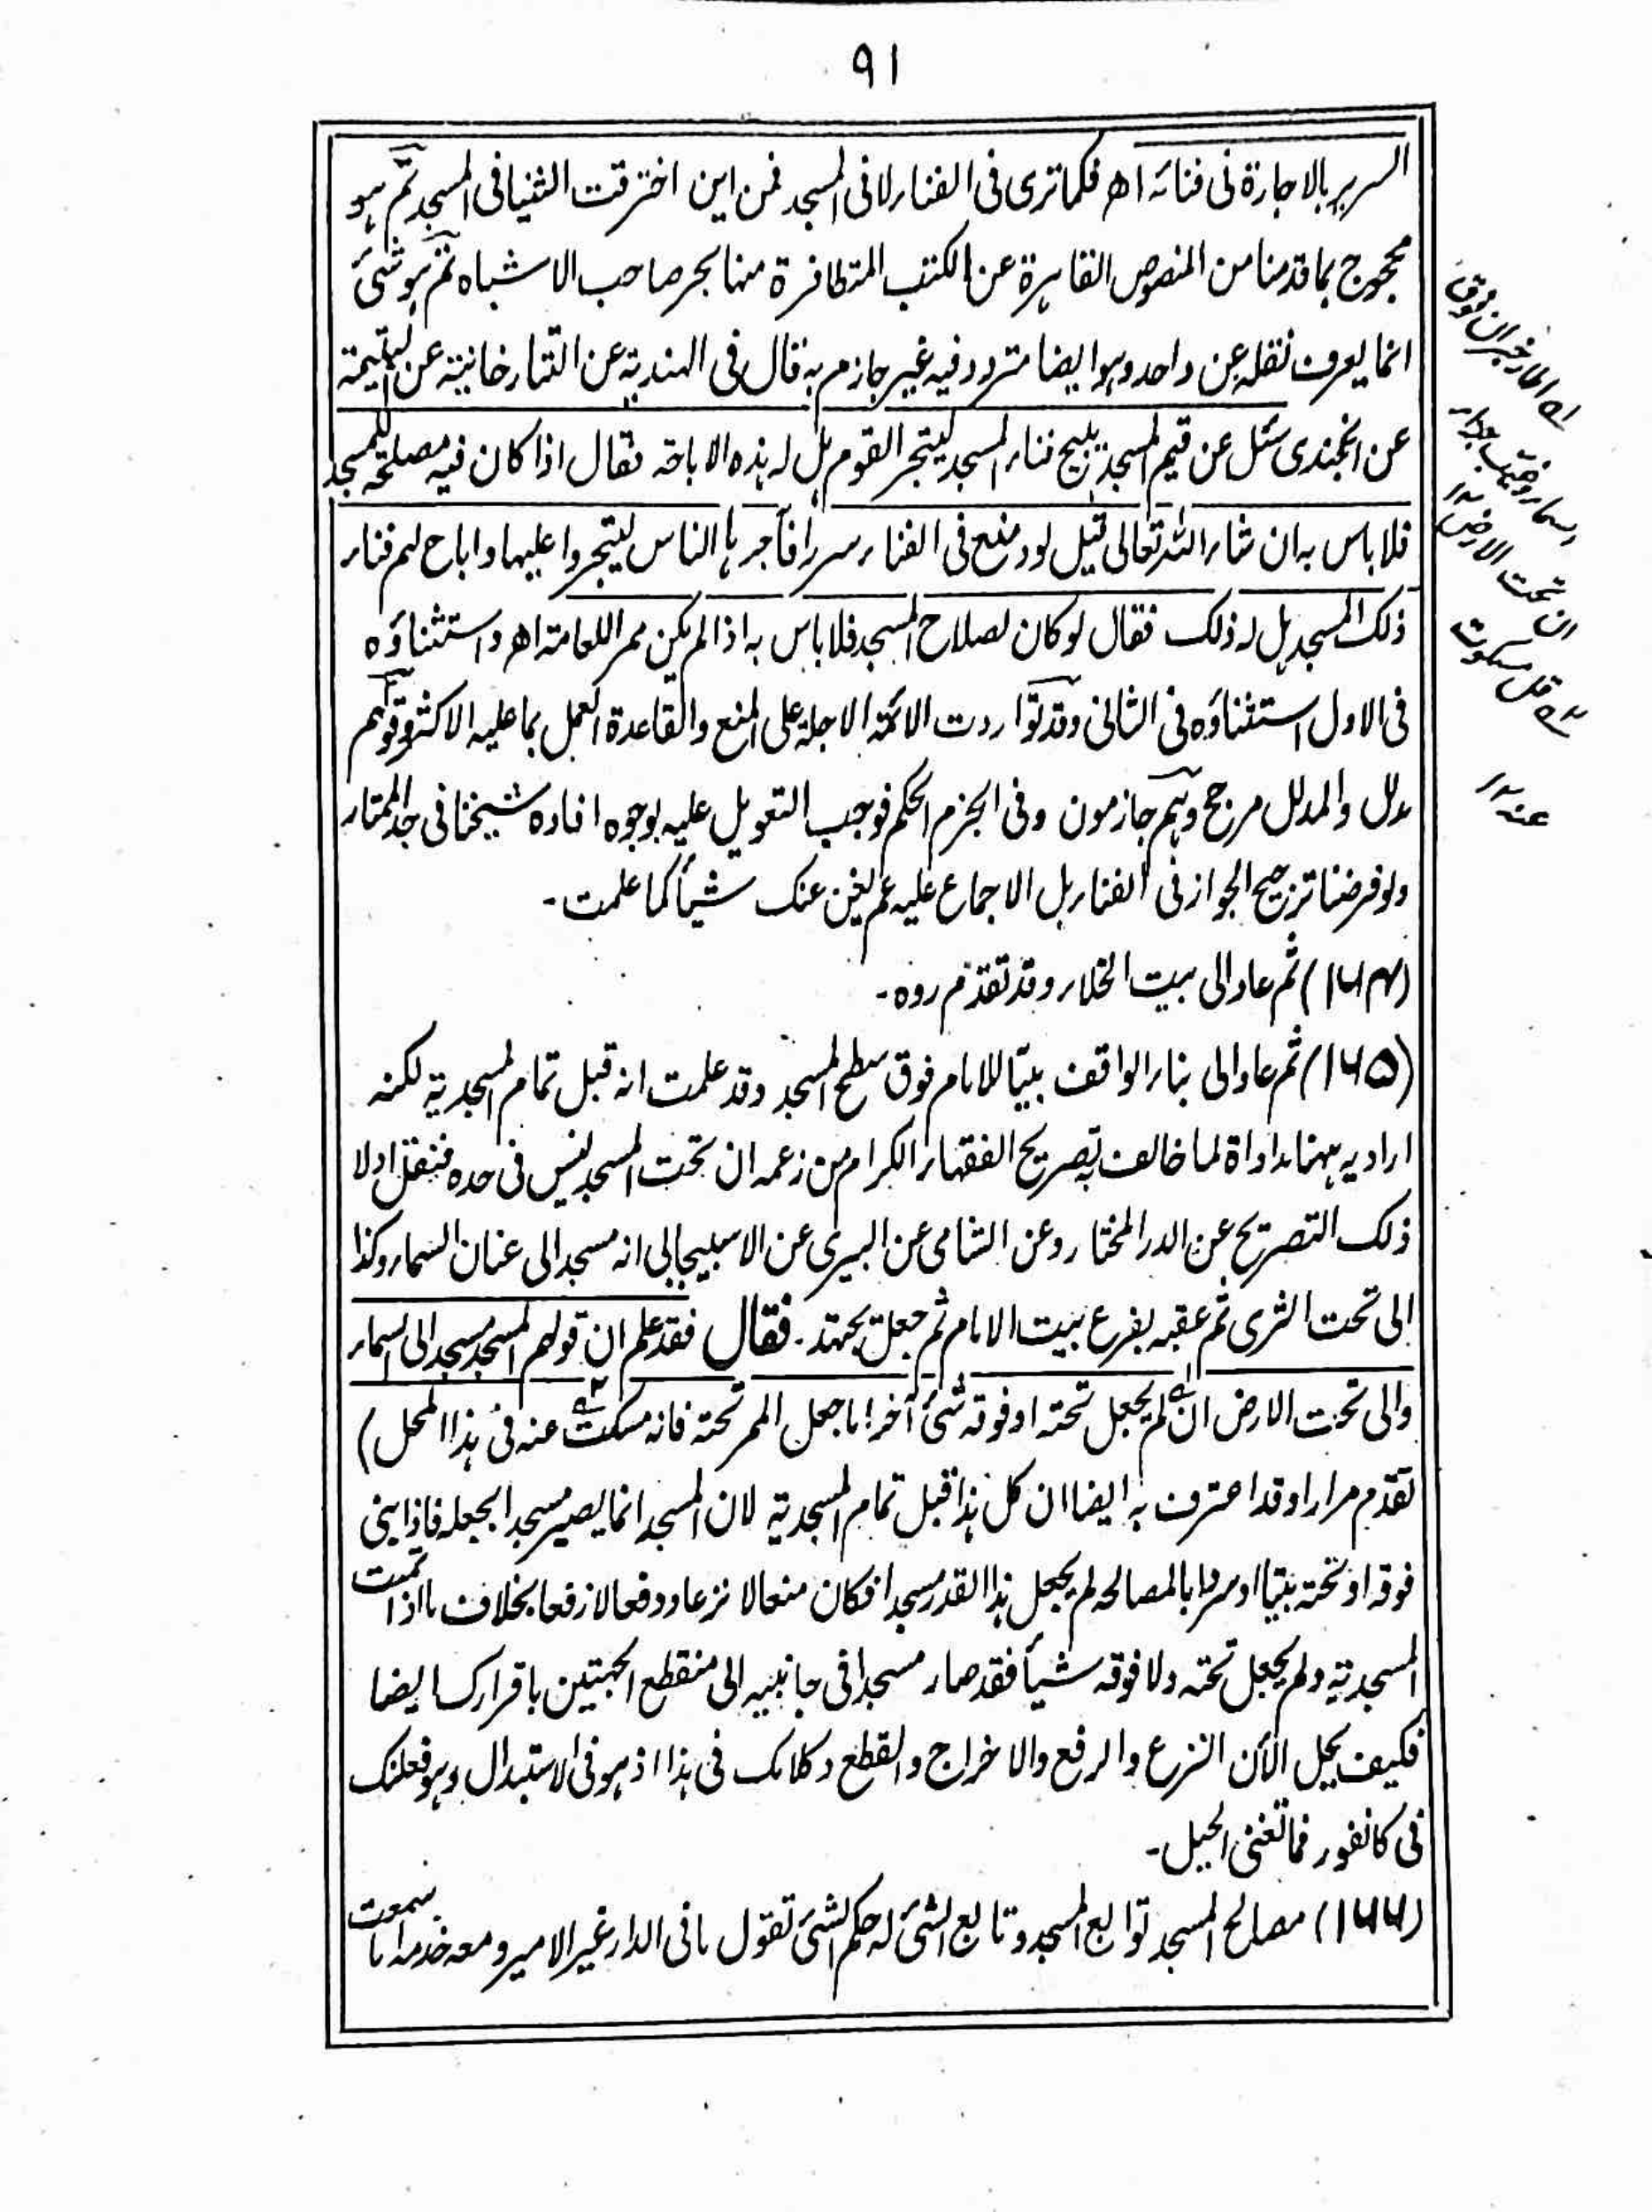 ٩١
السرير بالاجارة فی فنائه اھ فكما ترى فی الفناء لا فی المسجد فمن این اخترقت الثنیا فی المسجد ثم ہو
محجوج بما قدمنا من النصوص القاہرة عن الكتب المتظافرة منها بحر صاحب الاشباہ ثم ہو شئ
انما یعرف نقله عن واحد وہو ایضا متردد فیه غیر جازم به قال فی الہندیة عن التتارخانیة عن الیتیمة
عن الخجندی سئل عن قیم المسجد یبیح فناء المسجد لیتجر القوم ہل له ہذہ الاباحة فقال اذا كان فیه مصلحة للمسجد
فلا باس به ان شاء اللہ تعالى قیل لو وضع فی الفناء سررا فآجرہا الناس لیتجروا علیہا واباح لہم فناء
ذلك المسجد ہل له ذلك فقال لو كان لصلاح المسجد فلا باس به اذا لم یكن ممرا للعامة اھ واستثناؤہ
فی الاول استثناؤہ فی الثانی وقد تواردت الائمة الاجلة على المنع والقاعدة العمل بما علیه الاكثر وقولہم
مدلل والمدلل مرجح وہم جازمون وفی الجزم الحكم فوجب التعویل علیه بوجوہ افادہ شیخنا فی جد الممتار
ولو فرضنا ترجیح الجواز فی الفناء بل الاجماع علیه لم یغن عنك شیأ كما علمت۔
(۱۶۴) ثم عاد الى بیت الخلاء وقد تقدم ردہ۔
(۱۶۵) ثم عاد الى بناء الواقف بیتا للامام فوق سطح المسجد وقد علمت انه قبل تمام المسجدیة لكنه
اراد به ہہنا مداواة لما خالف به تصریح الفقہاء الكرام من زعمه ان تحت المسجد لیس فی حدہ فنقل اولا
ذلك التصریح عن الدر المختار وعن الشامی عن البیری عن الاسبیجابی انه مسجد الى عنان السماء وكذا
الى تحت الثرى ثم عقبه بفرع بیت الامام ثم جعل یجتہد۔ فقال فقد علم ان قولہم المسجد مسجد الى السماء
والى تحت الارض ان لم یجعل تحته او فوقه شئ آخر اما جعل الممر تحته فانه سكت عنه فی ہذا المحل)
تقدم مرارا وقد اعترف به ایضا ان كل ہذا قبل تمام المسجدیة لان المسجد انما یصیر مسجدا بجعله فاذا بنى
فوقه او تحته بیتا او سردابا لمصالحه لم یجعل ہذا القدر مسجدا فكان منعا لا نزعا ودفعا لا رفعا بخلاف ما اذا تمت
المسجدیة ولم یجعل تحته ولا فوقه شیأ فقد صار مسجدا فی جانبیه الى منقطع الجہتین باقرارك ایضا
فكیف یحل الآن النزع والرفع والاخراج والقطع وكلامك فی ہذا اذ ہو فی الاستبدال وہو فعلتك
فی كانفور فما تغنی الحیل۔
(۱۶۶) مصالح المسجد توابع المسجد وتابع الشئ له حكم الشئ تقول ما فی الدار غیر الامیر ومعه خدمه اما سمعت
تحت الارض ۱۲
عنه ۱۲